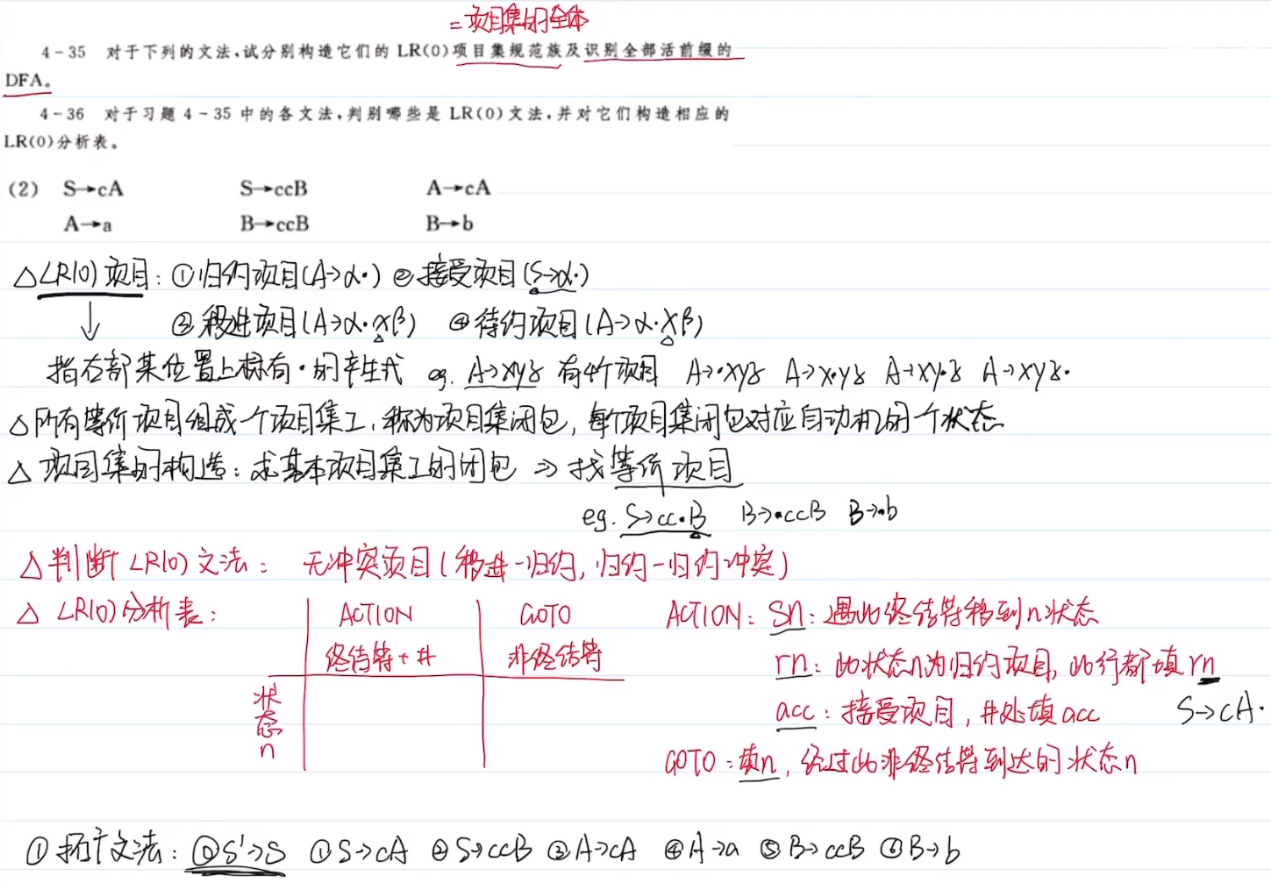 =项目集的全体
4-35 对于下列的文法,试分别构造它们的 LR(0)项目集规范族及识别全部活前缀的
DFA。
4-36 对于习题 4-35 中的各文法,判别哪些是 LR(0)文法,并对它们构造相应的
LR(0)分析表。
(2) S→cA S→ccB A→cA
A→a B→ccB B→b
△LR(0)项目:①归约项目(A→α·) ②接受项目(S→α·)
③移进项目(A→α·xβ) ④待约项目(A→α·Xβ)
↓
指右部某位置上标有·的产生式 eg. A→xyz 有4个项目 A→·xyz A→x·yz A→xy·z A→xyz·
△所有等价项目组成一个项目集I,称为项目集闭包,每个项目集闭包对应自动机的一个状态
△项目集的构造:求基本项目集I的闭包 ⇒ 找等价项目
eg. S→cc·B B→·ccB B→·b
△判断LR(0)文法: 无冲突项目(移进-归约,归约-归约冲突)
△ LR(0)分析表: ACTION GOTO ACTION: Sn:遇此终结符移到n状态
终结符+# 非终结符 rn:此状态n为归约项目,此行都填rn
状态n acc:接受项目,#处填acc S→cA·
GOTO:填n,经过此非终结符到达的状态n
①拓广文法:⓪S'→S ①S→cA ②S→ccB ③A→cA ④A→a ⑤B→ccB ⑥B→b